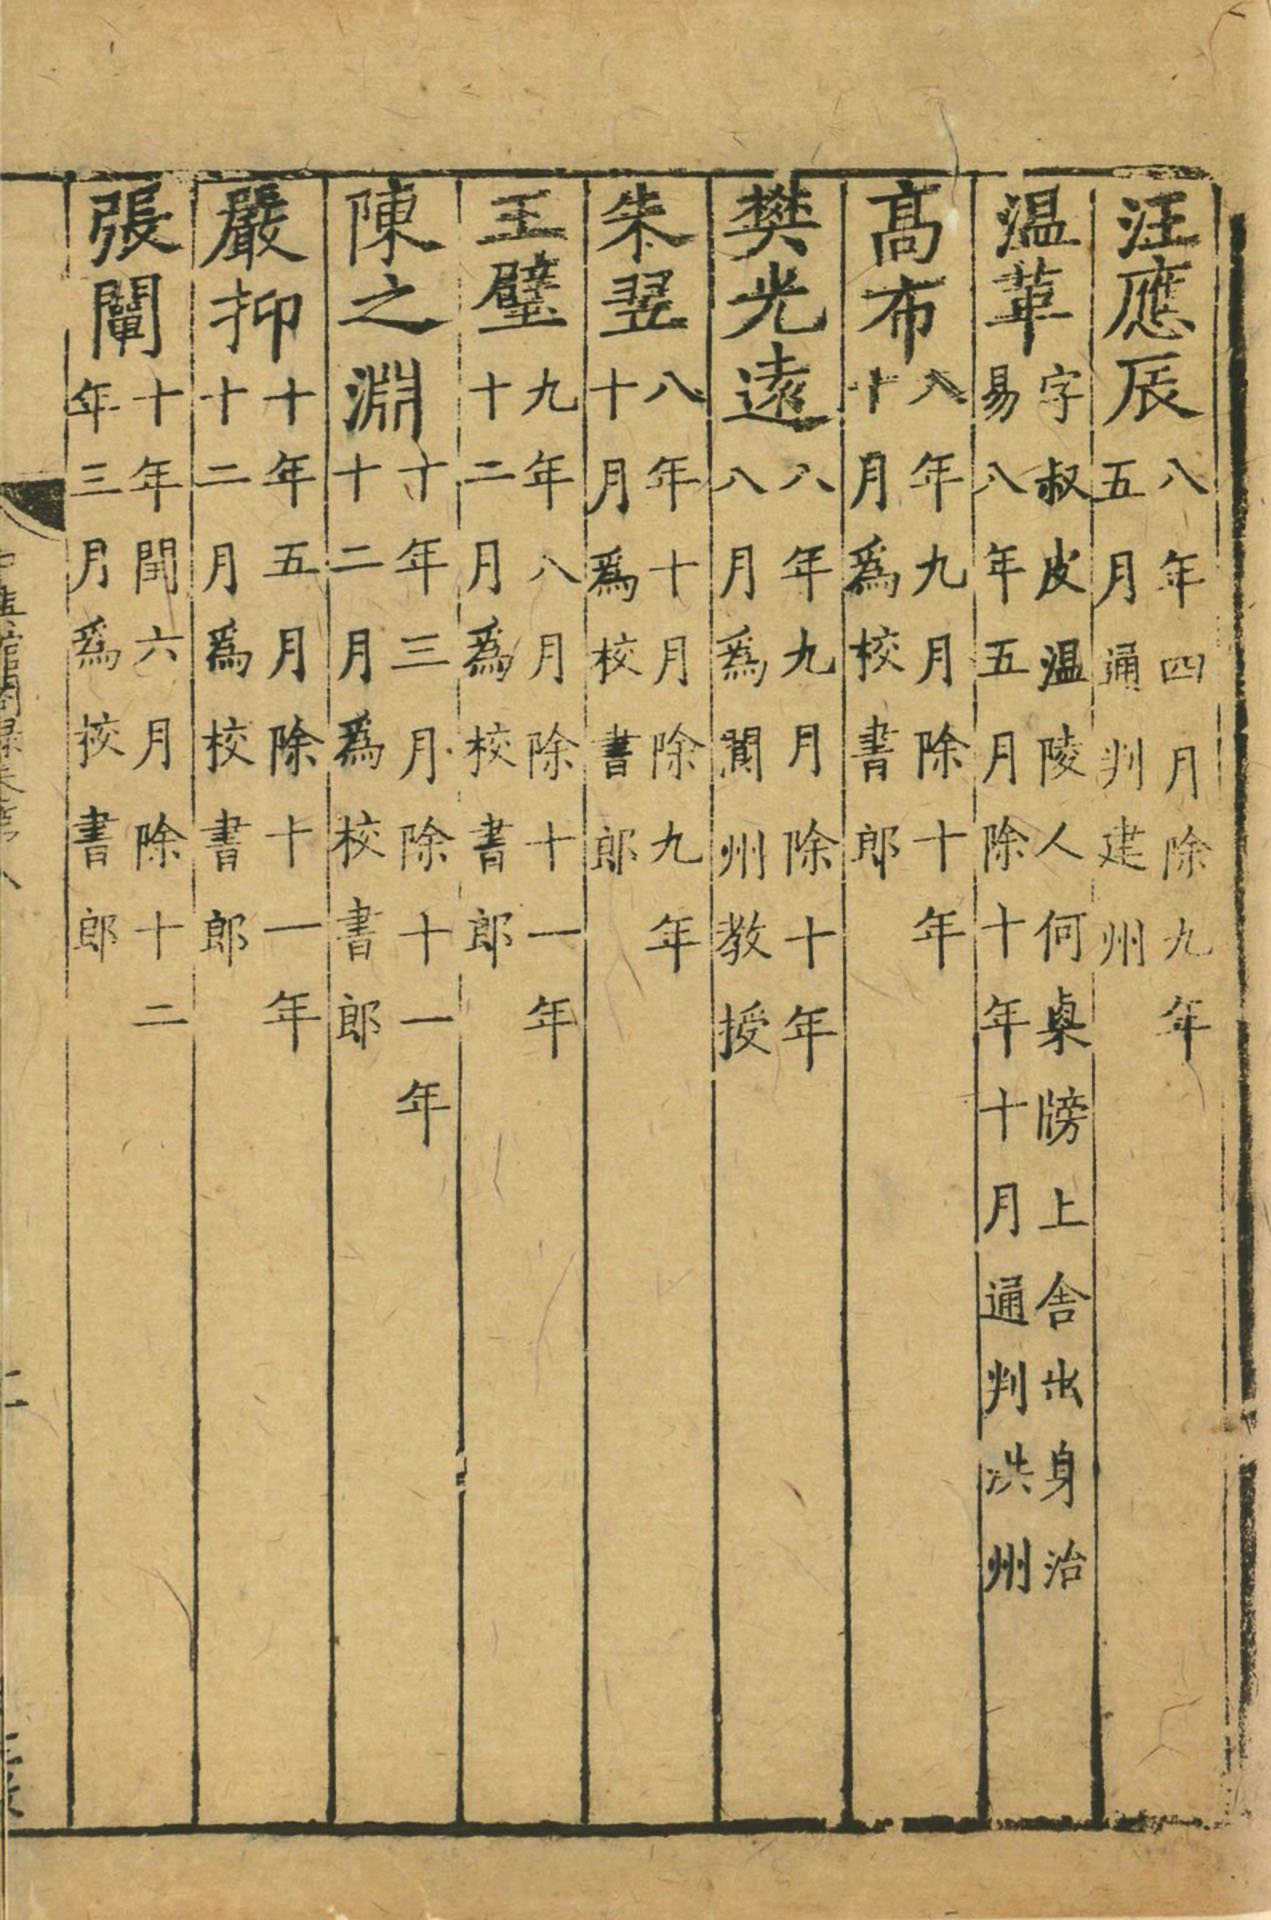 汪應辰 八年四月除九年
五月通判建州
温革 字叔皮温陵人何㮚牓上舍出身治
易八年五月除十年十月通判洪州
髙布 八年九月除十年
十月爲校書郎
樊光遠 八年九月除十年
八月爲閬州教授
朱翌 八年十月除九年
十月爲校書郎
王璧 九年八月除十一年
十二月爲校書郎
陳之淵 十年三月除十一年
十二月爲校書郎
嚴抑 十年五月除十一年
十二月爲校書郎
張闡 十年閏六月除十二
年三月爲校書郎